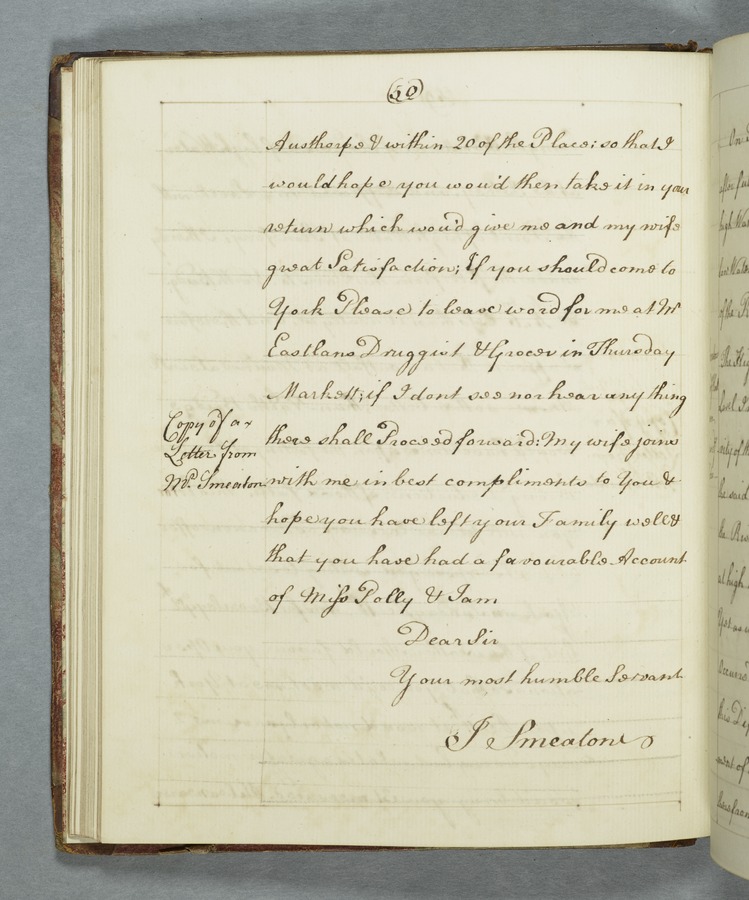 (50)
Austhorpe & within 20 of the Place; so that I
would hope you wou'd then take it in your
return which wou'd give me and my wife
great Satisfaction; If you should come to
York Please to leave word for me at Mr
Eastlans Druggist & Grocer in Thursday
Markett; if I dont see nor hear any thing
there shall Proceed forward: My wife joins
Copy of a
Letter from
Mr. Smeaton
with me in best compliments to You &
hope you have left your Family well &
that you have had a favourable Account
of Miss Polly & I am
Dear Sir
Your most humble Servant
J Smeaton